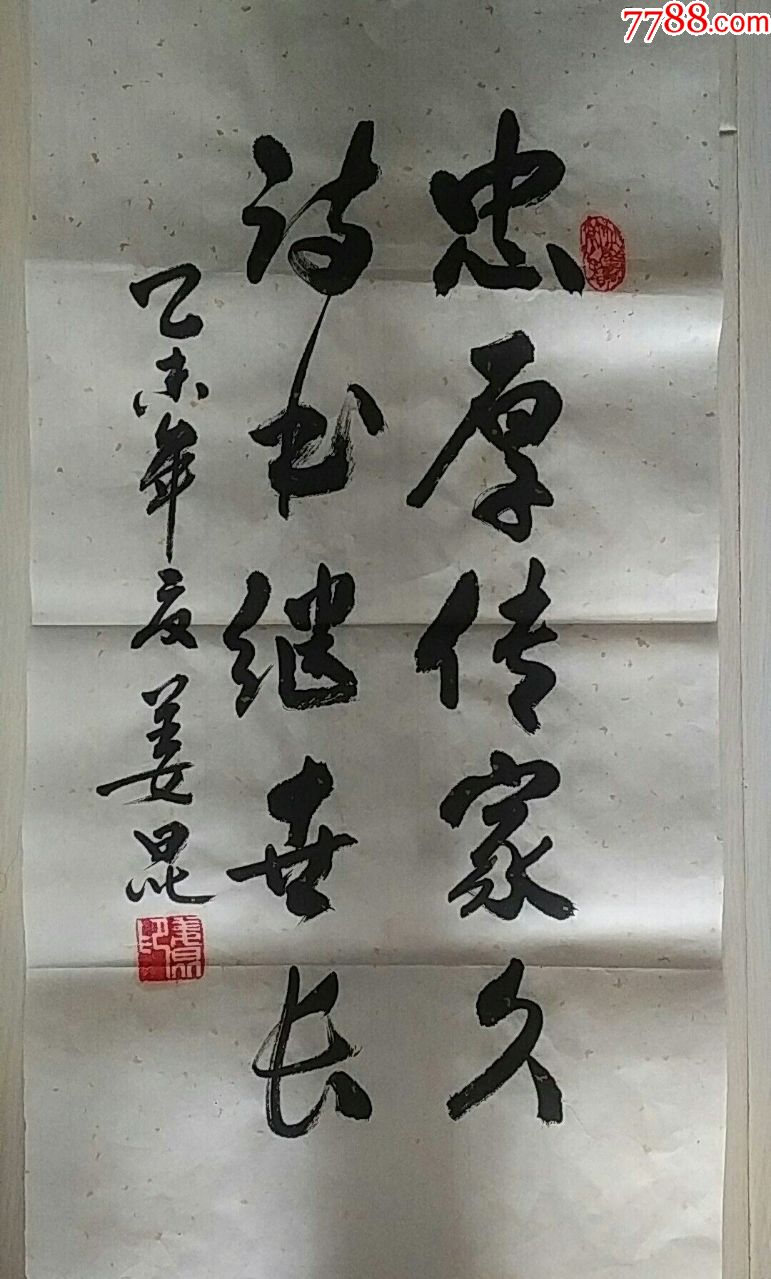 7788.com
忠厚传家久
诗书继世长
乙未年夏姜昆
姜昆印